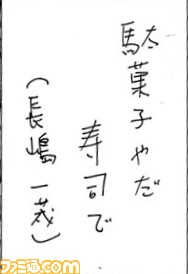 駄菓子やだ
寿司で
(長嶋一茂)
ファミ通.com